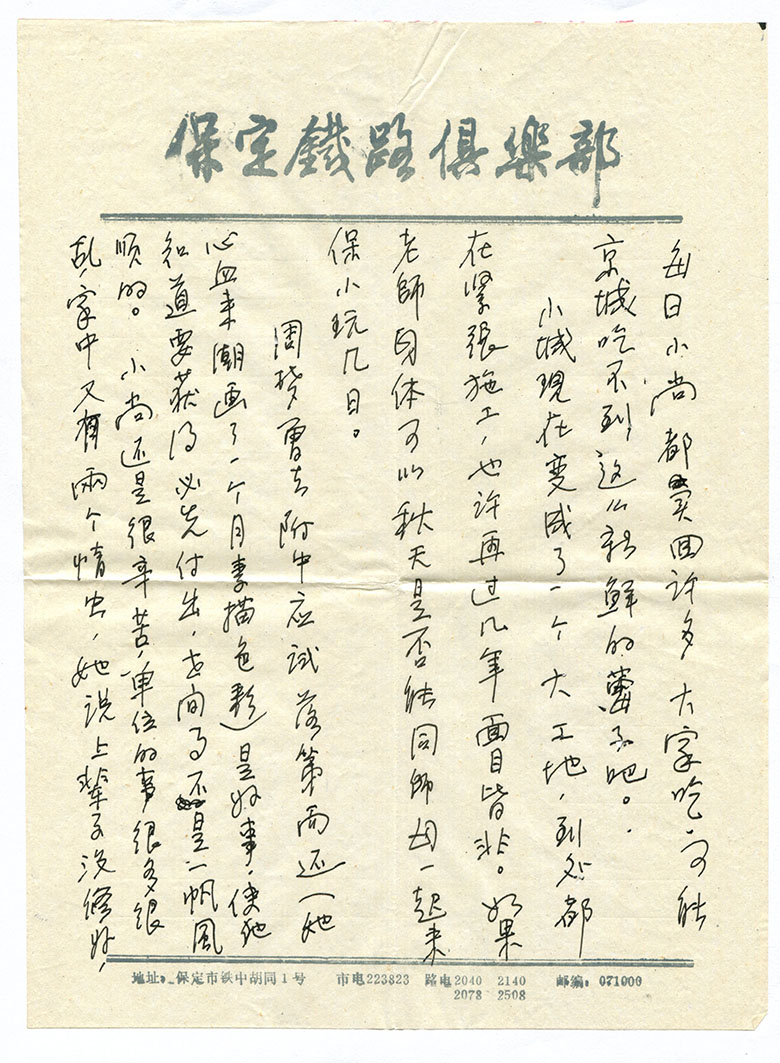 保定鐵路俱樂部
每日小尚都買回许多,大家吃,可能
京城吃不到这么新鲜的蘑子吧。
小城現在变成了一个大工地,到处都
在紧張施工,也许再过几年面目皆非。如果
老師身体可以秋天是否能同師母一起来
保小玩几日。
周梦曾去附中应試落第而还(她
心血来潮画了一个月素描色彩)是好事,使她
知道要获得必先付出,世间事不是一帆風
順的。小尚还是很辛苦,单位的事很多很
乱,家中又有兩个惰虫,她说上辈子没修好,
地址:保定市铁中胡同1号 市电223823 路电2040 2140 邮编:071000
2078 2508